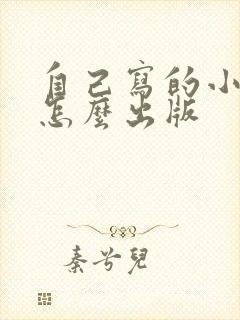 自己寫的小
怎麼出版
秦兮兒